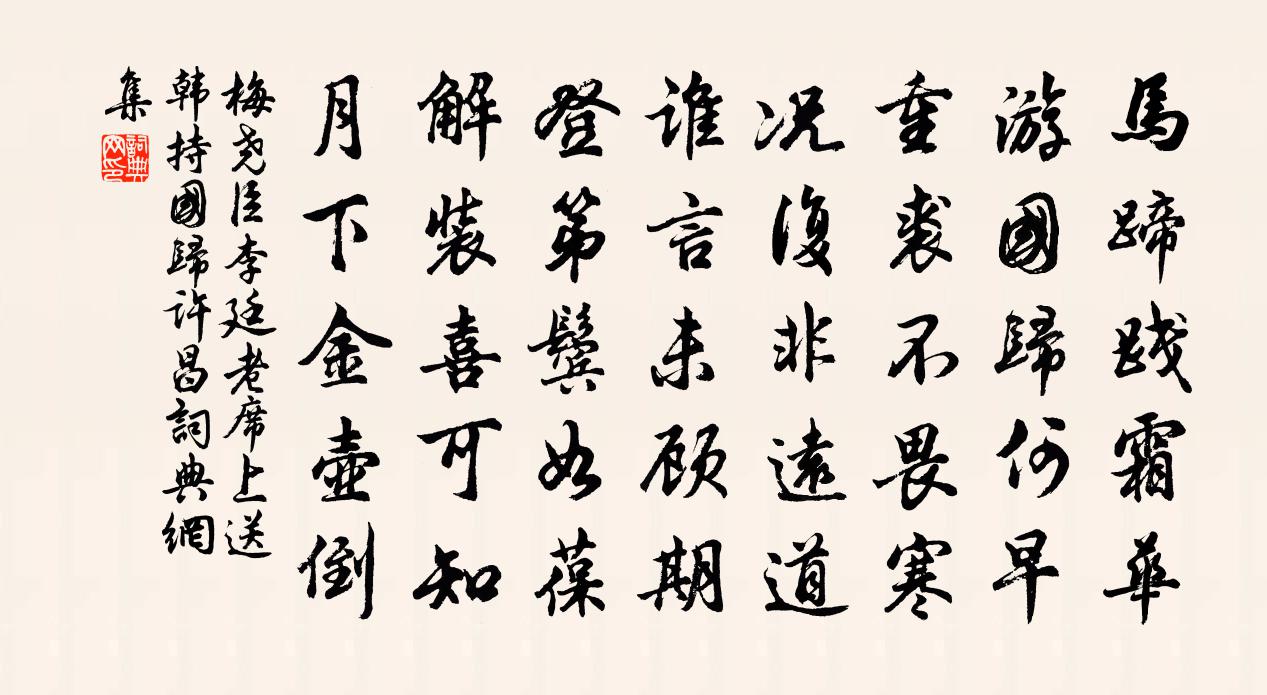 馬蹄踐霜華
游國歸何早
重裘不畏寒
况復非遠道
谁言未顾期
登第鬓如葆
解裝喜可知
月下金壺倒
梅尧臣李廷老席上送
韩持國歸许昌詞典網
集
詞典網印